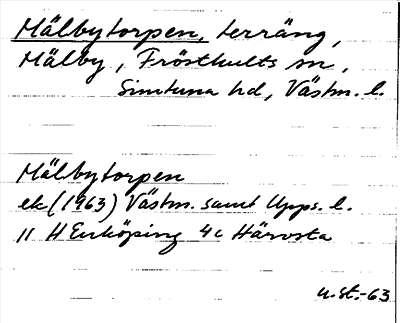 Mälbytorpen, terräng,
Mälby, Frösthults sn,
Simtuna hd, Västm. l.
Mälbytorpen
ek (1963) Västm. samt Upps. l.
11 H Enköping 4c Härvsta
u.st.-63